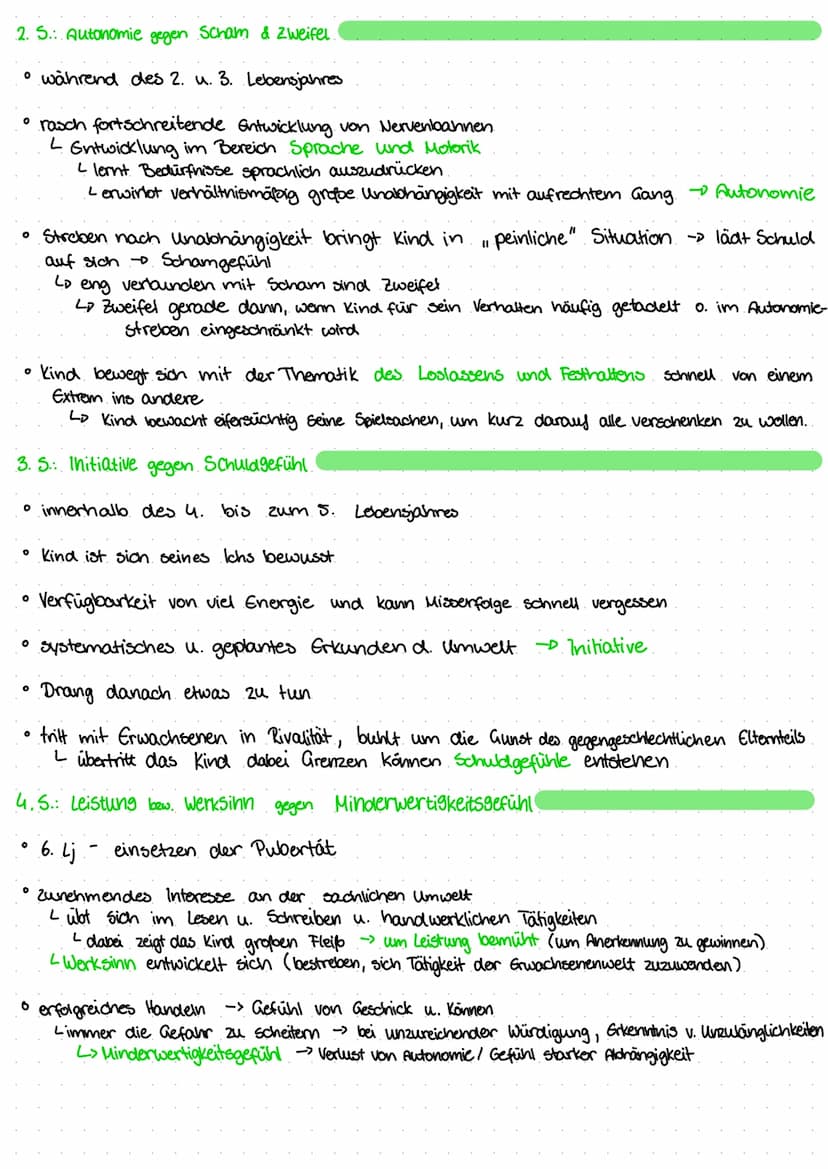 2. S.: Autonomie gegen Scham & Zweifel
° während des 2. u. 3. Lebensjahres
° rasch fortschreitende Entwicklung von Nervenbahnen
└ Entwicklung im Bereich Sprache und Motorik
└ lernt Bedürfnisse sprachlich auszudrücken
└ erwirbt verhältnismäßig große Unabhängigkeit mit aufrechtem Gang → Autonomie
° Streben nach Unabhängigkeit bringt Kind in „peinliche" Situation → lädt Schuld
auf sich → Schamgefühl
↳ eng verbunden mit Scham sind Zweifel
↳ Zweifel gerade dann, wenn Kind für sein Verhalten häufig getadelt o. im Autonomie-
streben eingeschränkt wird
° Kind bewegt sich mit der Thematik des Loslassens und Festhaltens schnell von einem
Extrem ins andere
↳ Kind bewacht eifersüchtig seine Spielsachen, um kurz darauf alle verschenken zu wollen.
3. S.: Initiative gegen Schuldgefühl
° innerhalb des 4. bis zum 5. Lebensjahres
° Kind ist sich seines Ichs bewusst
° Verfügbarkeit von viel Energie und kann Misserfolge schnell vergessen
° systematisches u. geplantes Erkunden d. Umwelt → Initiative
° Drang danach etwas zu tun
° tritt mit Erwachsenen in Rivalität, buhlt um die Gunst des gegengeschlechtlichen Elternteils
└ übertritt das Kind dabei Grenzen können Schuldgefühle entstehen
4. S.: Leistung bzw. Werksinn gegen Minderwertigkeitsgefühl
° 6. Lj - einsetzen der Pubertät
° zunehmendes Interesse an der sachlichen Umwelt
└ übt sich im Lesen u. Schreiben u. handwerklichen Tätigkeiten
└ dabei zeigt das Kind großen Fleiß → um Leistung bemüht (um Anerkennung zu gewinnen)
└ Werksinn entwickelt sich (bestreben, sich Tätigkeit der Erwachsenenwelt zuzuwenden)
° erfolgreiches Handeln → Gefühl von Geschick u. Können
└ immer die Gefahr zu scheitern → bei unzureichender Würdigung, Erkenntnis v. Unzulänglichkeiten
↳ Minderwertigkeitsgefühl → Verlust von Autonomie / Gefühl starker Abhängigkeit